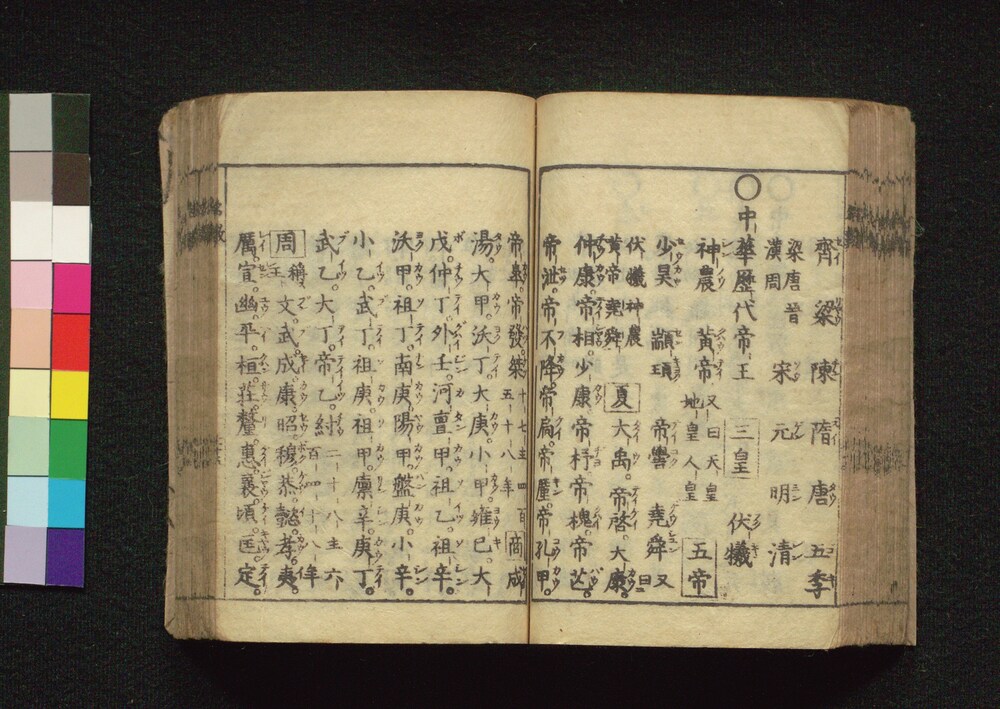 齊 梁 陳 隋 唐 五季
梁唐晋漢周 宋 元 明 清
〇中華歴代帝王 三皇 伏犧
神農 黄帝 又曰天皇地皇人皇 五帝
少昊 顓頊 帝嚳 堯 舜 又
伏犧神農黄帝堯舜 夏 大禹。帝啓。大康。
仲康。帝相。少康。帝杼。帝槐。帝芒。
帝泄。帝不降。帝扃。帝廑。帝孔甲。
帝皐。帝發。桀 十七主四百五十八年 商 成
湯。大甲。沃丁。大庚。小甲。雍己。大
戊。仲丁。外壬。河亶甲。祖乙。祖辛。
沃甲。祖丁。南庚。陽甲。盤庚。小辛。
小乙。武丁。祖庚。祖甲。廩辛。庚丁。
武乙。大丁。帝乙。紂 二十八主六百四十八年
周 稱王 文。武。成。康。昭。穆。恭。懿。孝。夷。
厲。宣。幽。平。桓。莊。釐。惠。襄。頃。匡。定。